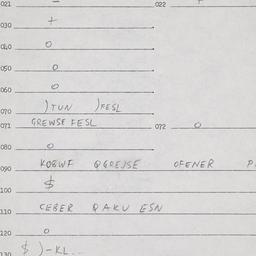 021 — 022 +
030 +
040 O
050 O
060 O
070 )TUN )FESL
071 GREWSE FESL 072 O
080 O
090 KOBWF QGREJSE OFENER P
100 $
110 CEBER QAKU ESN
120 O
130 $ )-KL...